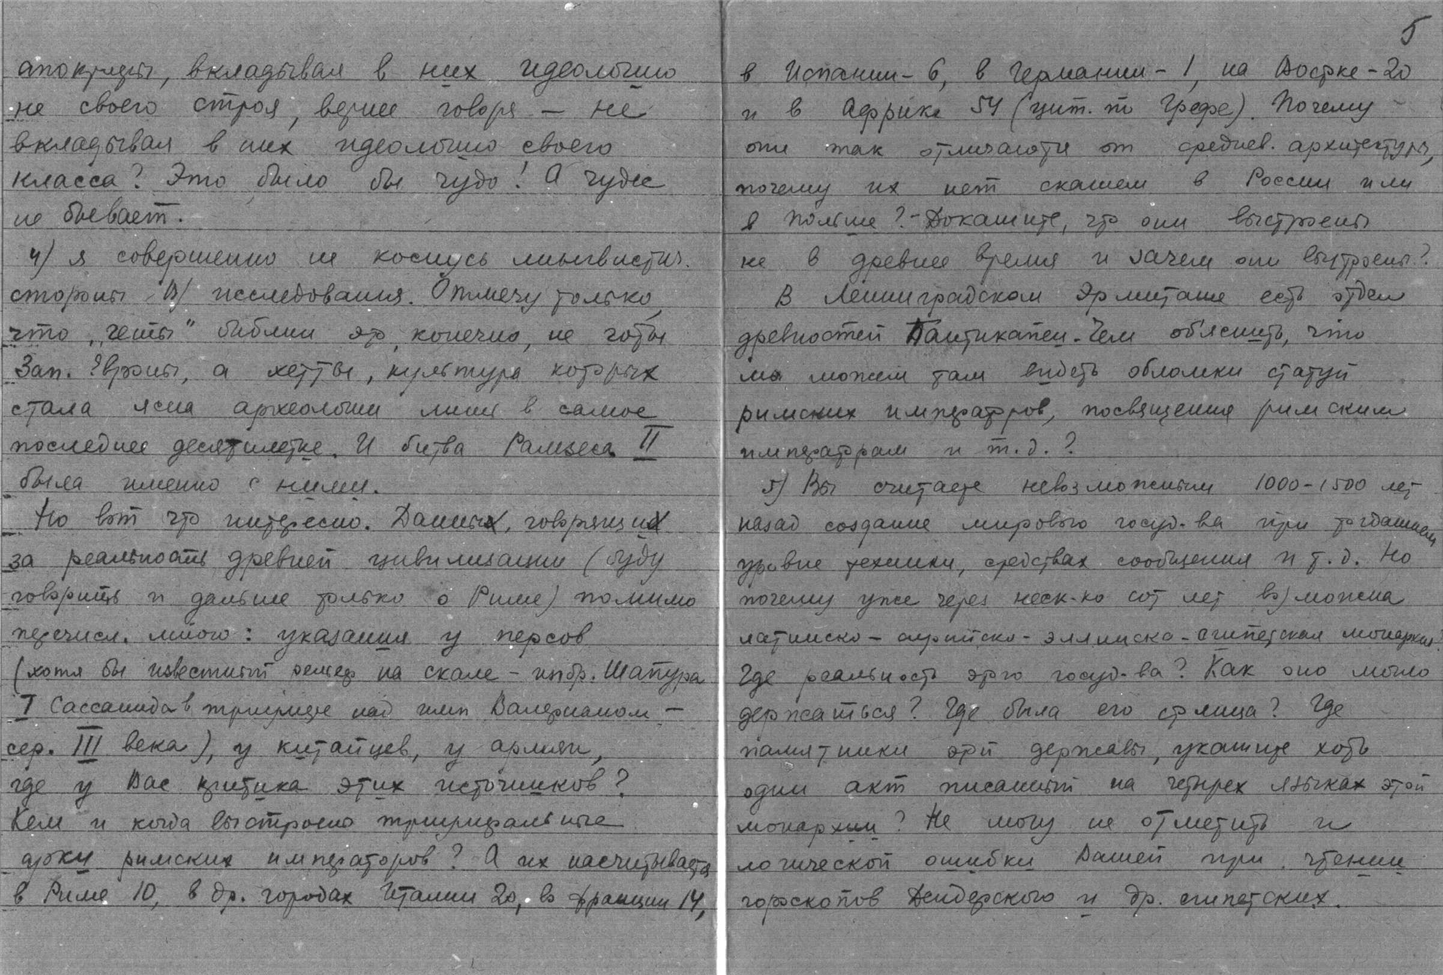 апокрифы, вкладывая в них идеологию
не своего строя, вернее говоря — не
вкладывая в них идеологию своего
класса? Это было бы чудо! А чудес
не бывает.
4) Я совершенно не коснусь лингвистич.
стороны В/ исследования. Отмечу только,
что „четы" библии это, конечно, не готы
Зап. Европы, а хетты, культура которых
стала ясна археологии лишь в самое
последнее десятилетие. И битва Рамзеса II
была именно с ними.
Но вот что интересно. Данных, говорящих
за реальность древней цивилизации (буду
говорить и дальше только о Риме) помимо
перечисл. много: указания у персов
(хотя бы известный рельеф на скале – изобр. Шапура
I Сассанида в триумфе над имп Валерианом –
сер. III века), у китайцев, у армян,
где у Вас критика этих источников?
Кем и когда выстроено триумфальные
арки римских императоров? А их насчитывается
в Риме 10, в др. городах Италии 20, во Франции 14,
5
в Испании – 6, в Германии – 1, на Востоке – 20
и в Африке 54 (цит. по Грефе). Почему
они так отличаются от среднев. архитектуры,
почему их нет скажем в России или
в Польше? – Докажите, что они выстроены
не в древнее время и зачем они выстроены?
В Ленинградском Эрмитаже есть отдел
древностей Пантикапеи. Чем объяснить, что
мы можем там видеть обломки статуй
римских императоров, посвящения римским
императорам и т.д.?
5) Вы считаете невозможным 1000–1500 лет
назад создание мирового госуд-ва при тогдашнем
уровне техники, средствах сообщения и т.д. Но
почему уже через неск-ко сот лет возможна
латинско – сирийско – эллинско – египетская монархия?
Где реальность этого госуд-ва? Как оно могло
держаться? Где была его столица? Где
памятники этой державы, укажите хоть
один акт писанный на четырех языках этой
монархии? Не могу не отметить и
логической ошибки Вашей при чтении
гороскопов Дендерского и др. египетских.